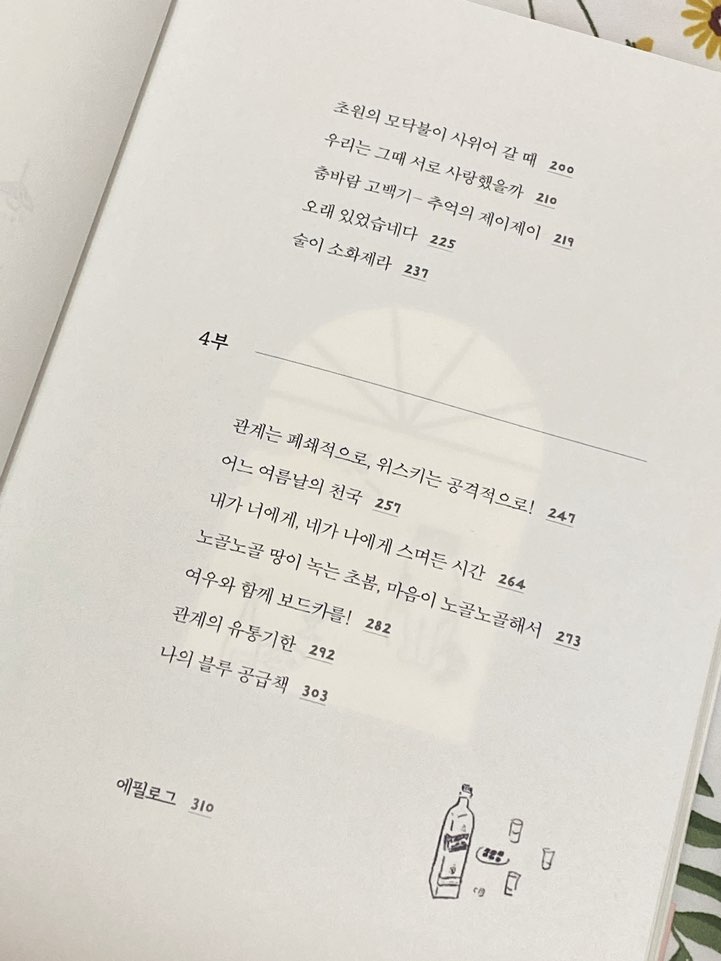 초원의 모닥불이 사위어 갈 때 200
우리는 그때 서로 사랑했을까 210
춤바람 고백기- 추억의 제이제이 219
오래 있었습네다 225
술이 소화제라 237
4부
관계는 폐쇄적으로, 위스키는 공격적으로! 247
어느 여름날의 천국 257
내가 너에게, 네가 나에게 스며든 시간 264
노골노골 땅이 녹는 초봄, 마음이 노골노골해서 273
여우와 함께 보드카를! 282
관계의 유통기한 292
나의 블루 공급책 303
에필로그 310